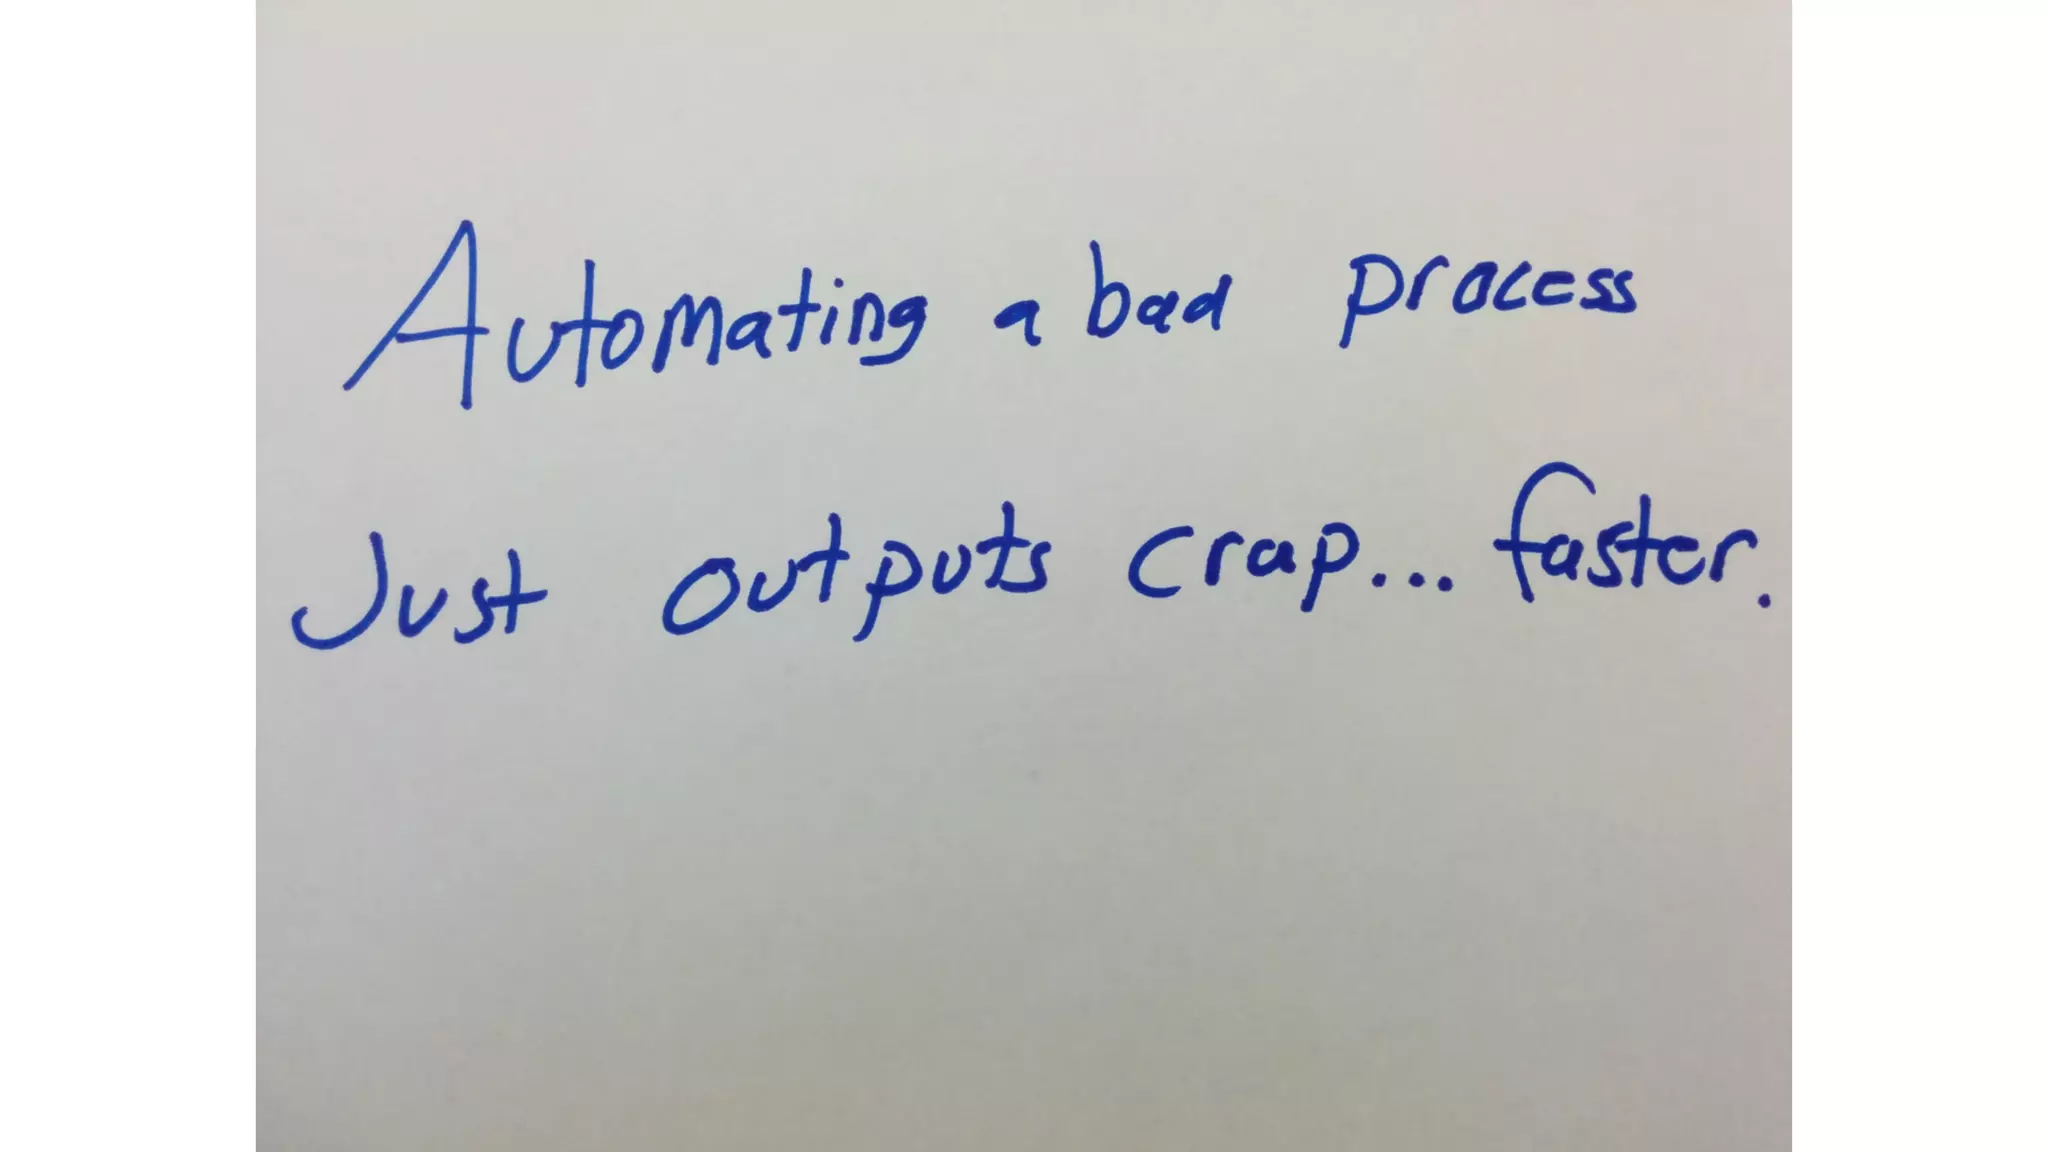 Automating a bad process
Just outputs crap... faster.